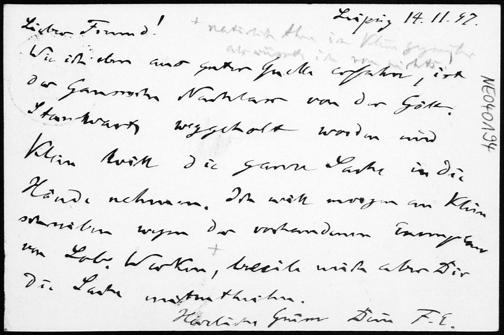 Leipzig 14.11.97.
Lieber Freund!
+ natürlich
Wie ich eben aus guter Quelle erfahre, ist
der Gausssche Nachlass von der Gött.
Sternwarte weggeholt worden und
Klein will die ganze Sache in die
Hände nehmen. Ich will morgen an Klein
schreiben wegen der vorhandenen Exemplare
von Lob. Werken, beeile mich aber Dir
+
die Sache mitzutheilen.
Herzliche Grüsse Dein F. E.
NE040194